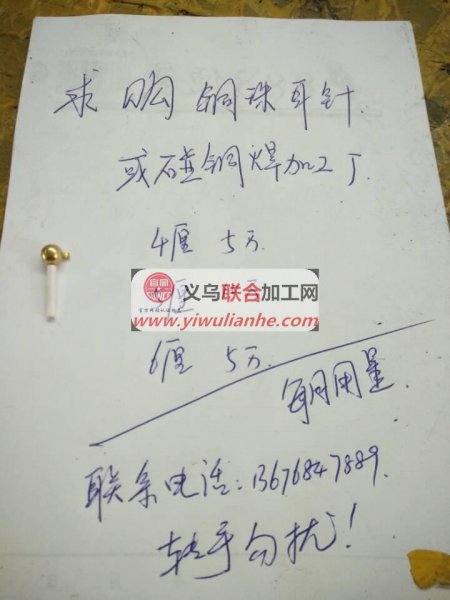 求购铜珠耳针
或碰铜焊加工厂
4厘 5万
义乌联合加工网
www.yiwulianhe.com
6厘 5万
每月用量.
联系电话:13676847889.
转手勿扰!